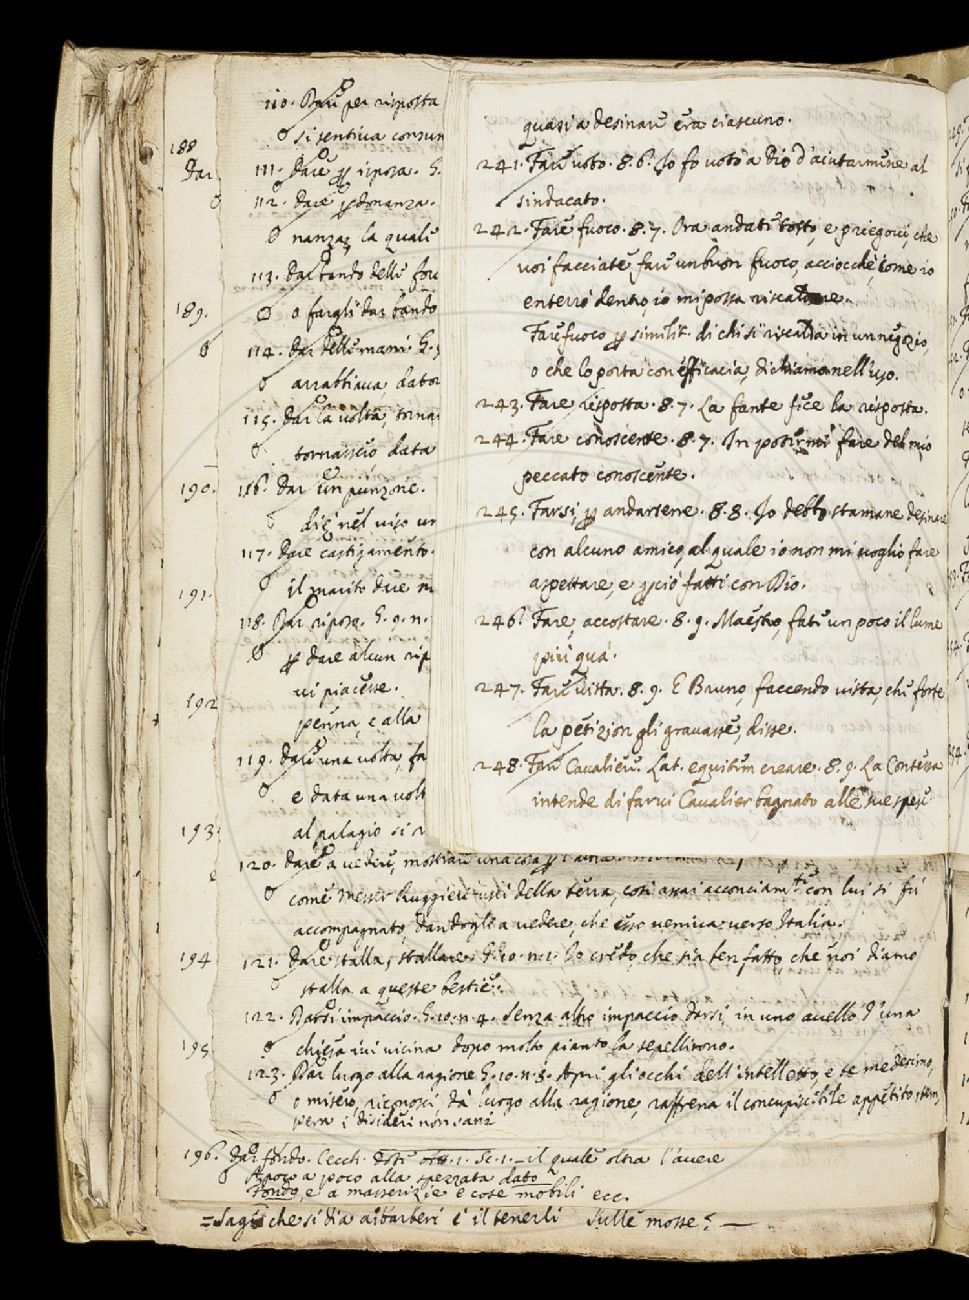 188
Dar
189.
190.
191.
192
193
194
195
196. Dar fondo. Cecch. Dote att. 1. Sc. 1. – il quale oltra l'avere
A poco a poco alla spezzata dato
Fondo, e a masserizie e cose mobili ecc.
= Sagg che si dia a' barberi e il tenerli sulle mosse? —
110. Dare per risposta
si sentiva consum
111. Dare p riposa. G.
112. Dare p donanza.
nanza, la quale
113. Dar bando delle for
o fargli dar bando
114. Dar delle mani G.
arrabbiava, dato
115. Dar la volta, torna
tornassero data
116. Dar un punzone.
diè nel viso un
117. Dare castigamento.
il marito dare
118. Dar riposo. G. 9. n.
p dare alcun rip
vi piacesse.
penna, e alla
119. Dare una volta, fa
e data una volt
al palagio si
120. Dare a vedere, mostrare una cosa p l'altra
come Messer Ruggieri uscì della terra, così assai acconciamte con lui si fu
accompagnato, dandogli a vedere, che esso veniva verso Italia.
121. Dare stalla, stallare. G. 10. n. 2. Io credo, che sia ben fatto, che noi diamo
stalla a queste bestie.
122. Darsi impaccio. G. 10. n. 4. Senza altro impaccio darsi, in uno avello d'una
chiesa ivi vicina dopo molto pianto la sepellirono.
123. Dar luogo alla ragione G. 10. n. 8. Apri gli occhi dell'intelletto, e te medesimo,
o misero, riconosci, dà luogo alla ragione, raffrena il concupiscibile appetito, tem
pera i disideri non sani
quasi a desinare era ciascuno.
241. Fare voto. 8. 6. Io fo voto a Dio d'aiutarmene al
sindacato.
242. Fare fuoco. 8. 7. Ora andate tosto, e priegovi, che
voi facciate fare un buon fuoco, acciocchè, come io
enterrò dentro, io mi possa riscaldare.
Fare fuoco p similit. di chi si riscalda in un negozio,
o che lo porta con efficacia, diciamo nell'uso.
243. Fare risposta. 8. 7. La fante fece la risposta.
244. Fare conoscente. 8. 7. In potermi fare del mio
peccato conoscente.
245. Farsi, p andarsene. 8. 8. Io debbo stamane desinare
con alcuno amico, al quale io non mi voglio fare
aspettare, e pciò fatti con Dio.
246. Fare, accostare. 8. 9. Maestro, fate un poco il lume
più quà.
247. Fare vista. 8. 9. E Bruno, faccendo vista, che forte
la petizion gli gravasse, disse.
248. Fare Cavaliere. Lat. equitem creare. 8. 9. La Contessa
intende di farvi Cavalier bagnato alle sue spese